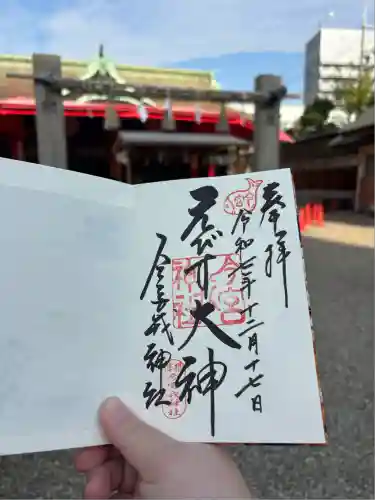 奉拝
令和七年十二月十七日
えびす大神
今宮戎神社
今宮
神社